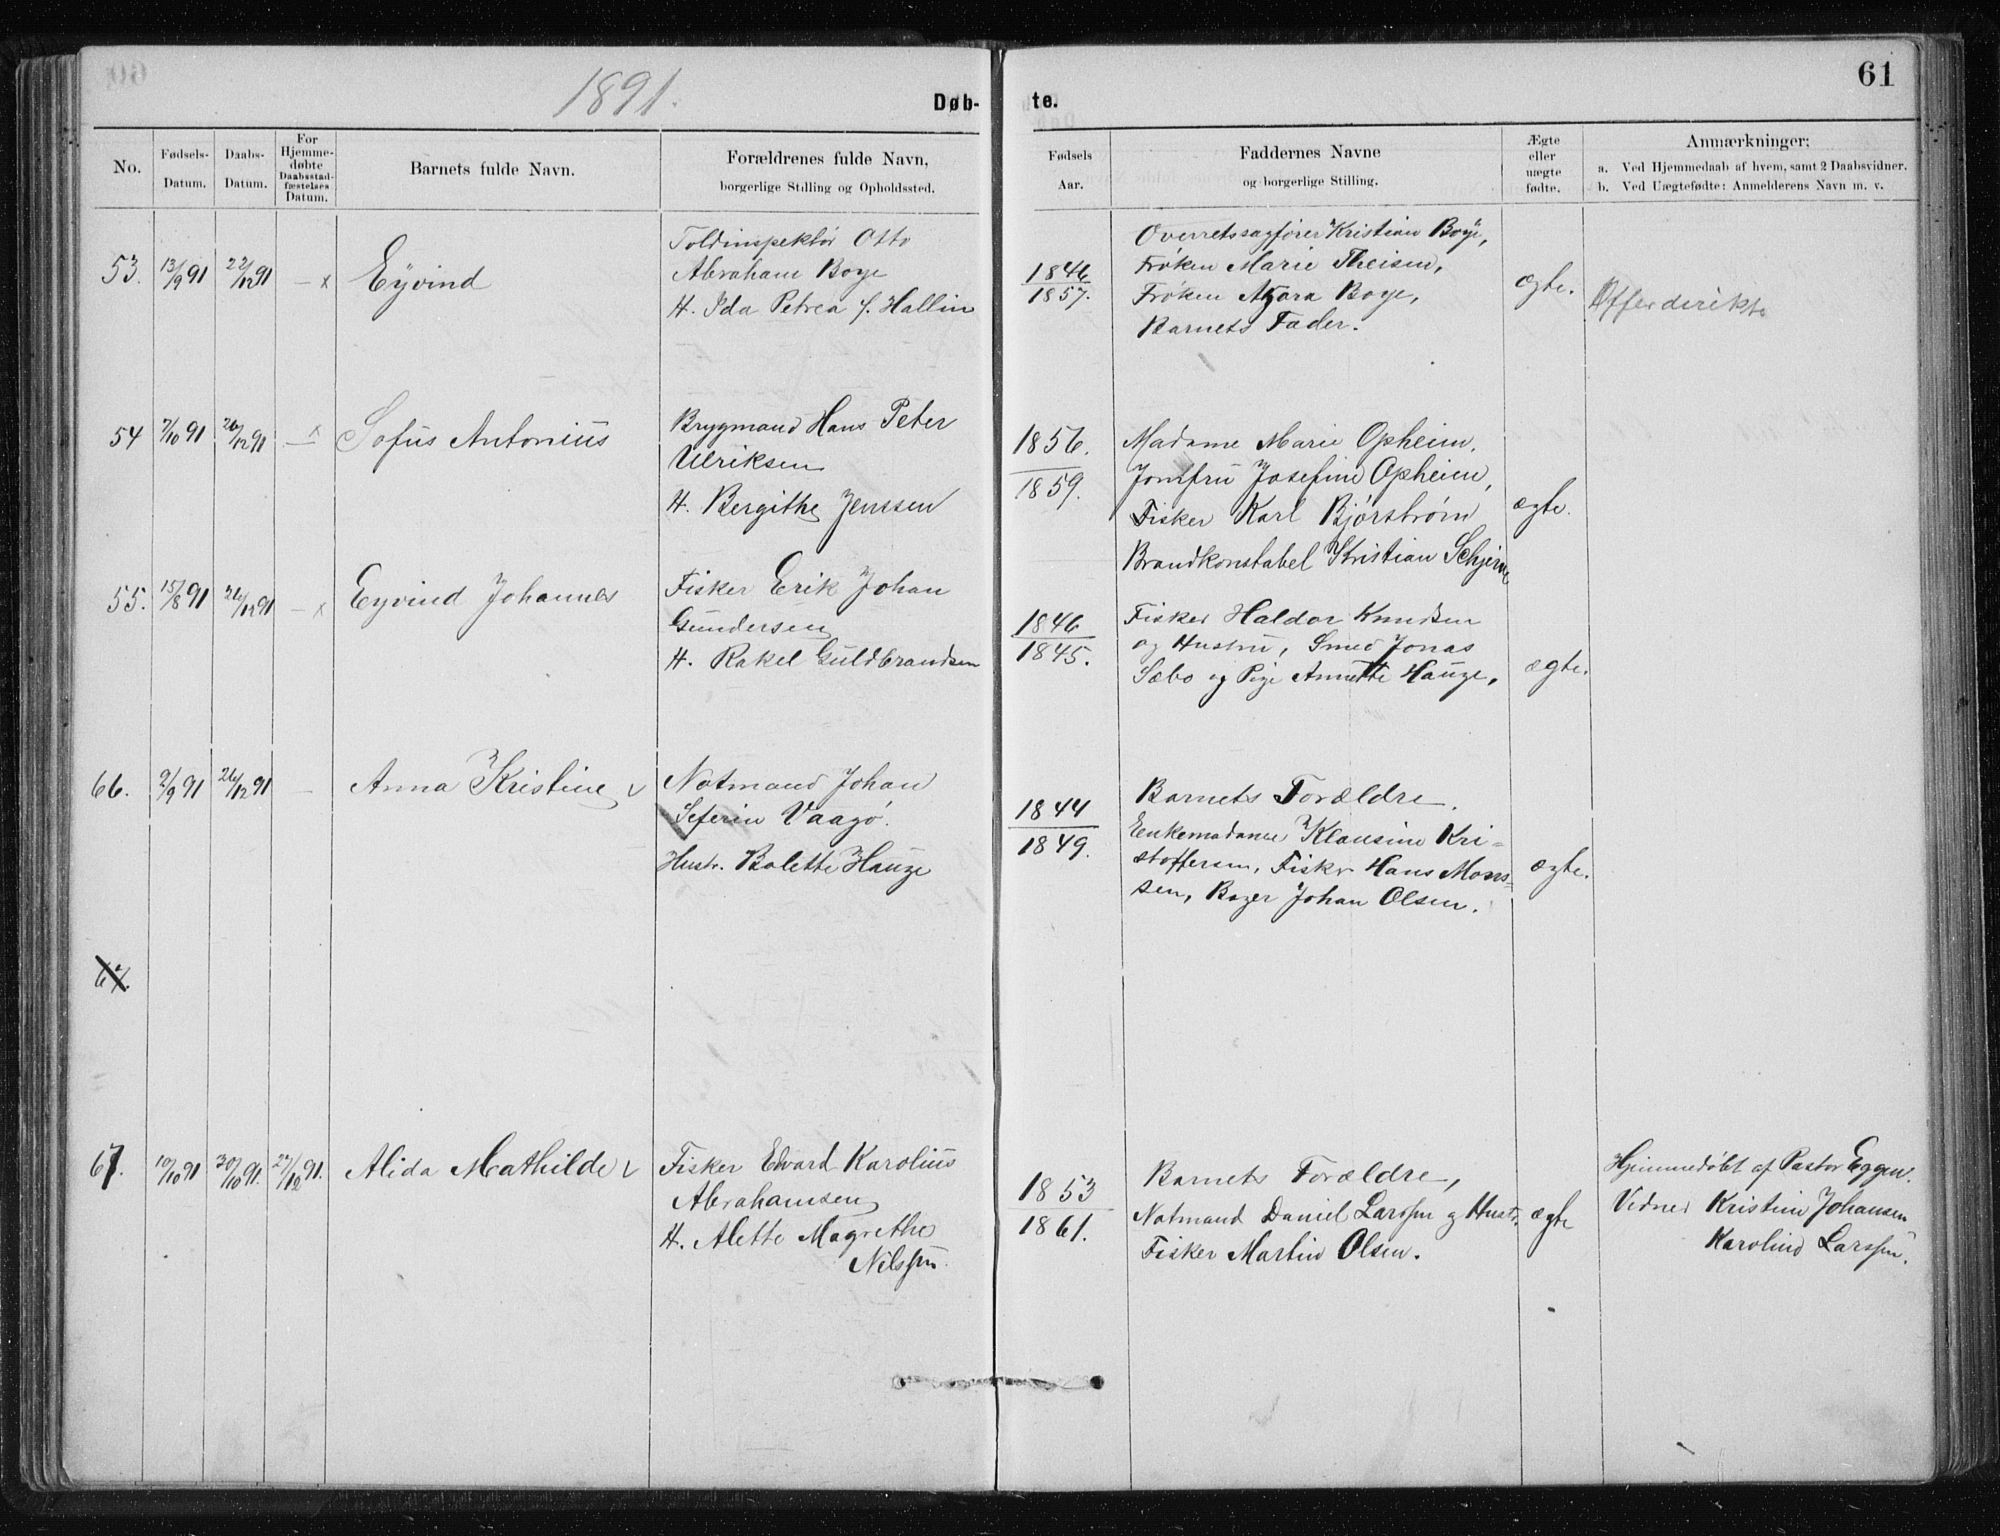 1891.
Døb-
No.
Fødsels-
Datum.
Daabs-
Datum.
For
Hjemme-
døbte
Daabsstad-
fæstelses
Datum.
Barnets fulde Navn.
Forældrenes fulde Navn,
borgerlige Stilling og Opholdssted.
53.
13/9 91
22/12 91
— x
Eyvind
Toldinspektør Otto
Abraham Boye
H. Ida Petrea f. Hallin
54
7/10 91
26/12 91
— x
Sofus Antonius
Brygmand Hans Peter
Ulriksen
H. Bergithe Jenssen
55.
15/8 91
26/12 91
— x
Eyvind Johannes
Fisker Erik Johan
Gundersen
H. Rakel Guldbrandsen
66.
2/9 91
26/12 91
—
Anna Kristine v
Notmand Johan
Seferin Vaagø.
Hustr. Bolette Hauge
67.
67.
10/10 91
30/10 91.
27/12 91.
Alida Mathilde v
Fisker Edvard Karolius
Abrahamsen
H. Alette Magrethe
Nilssen.
61
te.
Fødsels
Aar.
Faddernes Navne
og borgerlige Stilling.
Ægte
eller
uægte
fødte.
Anmærkninger;
a. Ved Hjemmedaab af hvem, samt 2 Daabsvidner.
b. Ved Uægtefødte: Anmelderens Navn m. v.
1846
1857.
Overretssagfører Kristian Boye,
Frøken Marie Theisen,
Frøken Boye,
Barnets Fader.
ægte.
1856.
1859.
Madame Marie Opheim.
Jomfru Josefine Opheim,
Fisker Karl Bjørstrøm
Brandkonstabel Kristian
ægte.
1846
1845.
Fisker Haldor Knudsen
og Hustru, Smed Jonas
Sæbo og Pige Annette Hauge.
ægte.
1844
1849.
Barnets Forældre.
Enkemadame Klausine Kri-
stoffersen, Fisker Hans Mons-
sen, Bager Johan Olsen.
ægte.
1853
1861.
Barnets Forældre,
Notmand Daniel Larssen og Hustr.
Fisker Martin Olsen.
ægte
Hjemmedøbt af Pastor Eggen.
Vidner Kristine Johansen
Karoline Larssen.